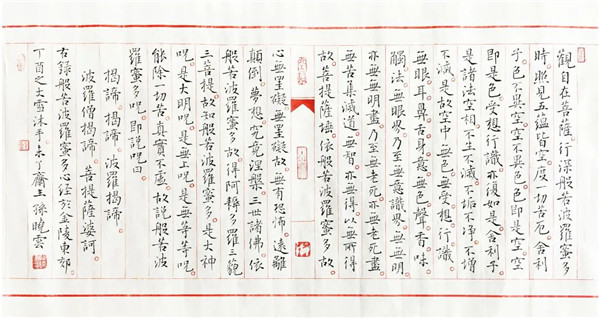 觀自在菩薩行深般若波羅蜜多
時照見五蘊皆空度一切苦厄舍利
子色不異空空不異色色即是空空
即是色受想行識亦復如是舍利子
是諸法空相不生不滅不垢不淨不增
不減是故空中無色無受想行識
無眼耳鼻舌身意無色聲香味
觸法無眼界乃至無意識界無無明
亦無無明盡乃至無老死亦無老死盡
無苦集滅道無智亦無得以無所得
故菩提薩埵依般若波羅蜜多故
心無罣礙無罣礙故無有恐怖遠離
顛倒夢想究竟涅槃三世諸佛依
般若波羅蜜多故得阿耨多羅三藐
三菩提故知般若波羅蜜多是大神
呪是大明呪是無上呪是無等等呪
能除一切苦真實不虛故說般若波
羅蜜多呪即說呪曰
揭諦揭諦波羅揭諦
波羅僧揭諦菩提薩婆訶
右錄般若波羅蜜多心經於金陵東郊
丁酉之大雪沐手未了齋主孫曉雲